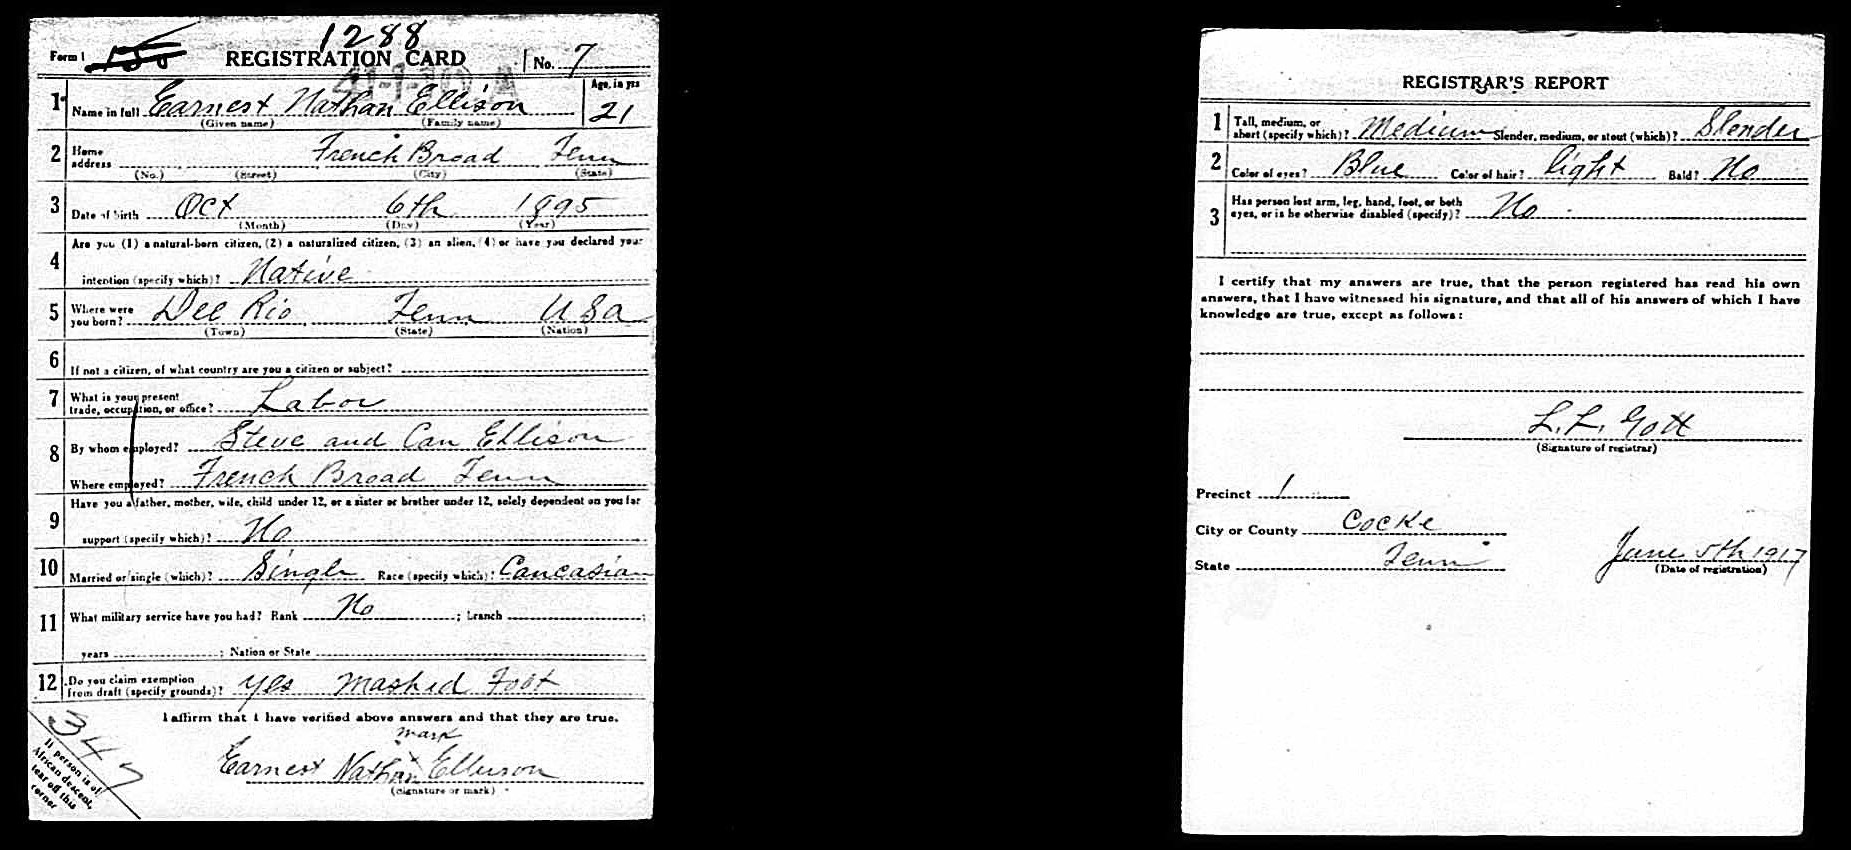 1288
Form 1 155 REGISTRATION CARD No. 7
41-1-10 A
1 Name in full Earnest Nathan Ellison Age, in yrs 21
(Given name) (Family name)
2 Home address French Broad Tenn
(No.) (Street) (City) (State)
3 Date of birth Oct 6th 1895
(Month) (Day) (Year)
4 Are you (1) a natural-born citizen, (2) a naturalized citizen, (3) an alien, (4) or have you declared your
intention (specify which)? Native
5 Where were you born? Del Rio Tenn USA
(Town) (State) (Nation)
6 If not a citizen, of what country are you a citizen or subject?
7 What is your present
trade, occupation, or office? Labor
8 By whom employed? Steve and Can Ellison
Where employed? French Broad Tenn
9 Have you a father, mother, wife, child under 12, or a sister or brother under 12, solely dependent on you for
support (specify which)? No
10 Married or single (which)? Single Race (specify which)? Caucasian
11 What military service have you had? Rank No ; branch ;
years ; Nation or State
12 Do you claim exemption
from draft (specify grounds)? Yes Mashed Foot
I affirm that I have verified above answers and that they are true.
mark
Earnest Nathan x Ellison
(Signature or mark)
347
If person is of
African descent,
tear off this
corner
REGISTRAR'S REPORT
1 Tall, medium, or
short (specify which)? Medium Slender, medium, or stout (which)? Slender
2 Color of eyes? Blue Color of hair? light Bald? No
3 Has person lost arm, leg, hand, foot, or both
eyes, or is he otherwise disabled (specify)? No
I certify that my answers are true, that the person registered has read his own
answers, that I have witnessed his signature, and that all of his answers of which I have
knowledge are true, except as follows:
L. L. Gott
(Signature of registrar)
Precinct 1
City or County Cocke
State Tenn
June 5th 1917
(Date of registration)